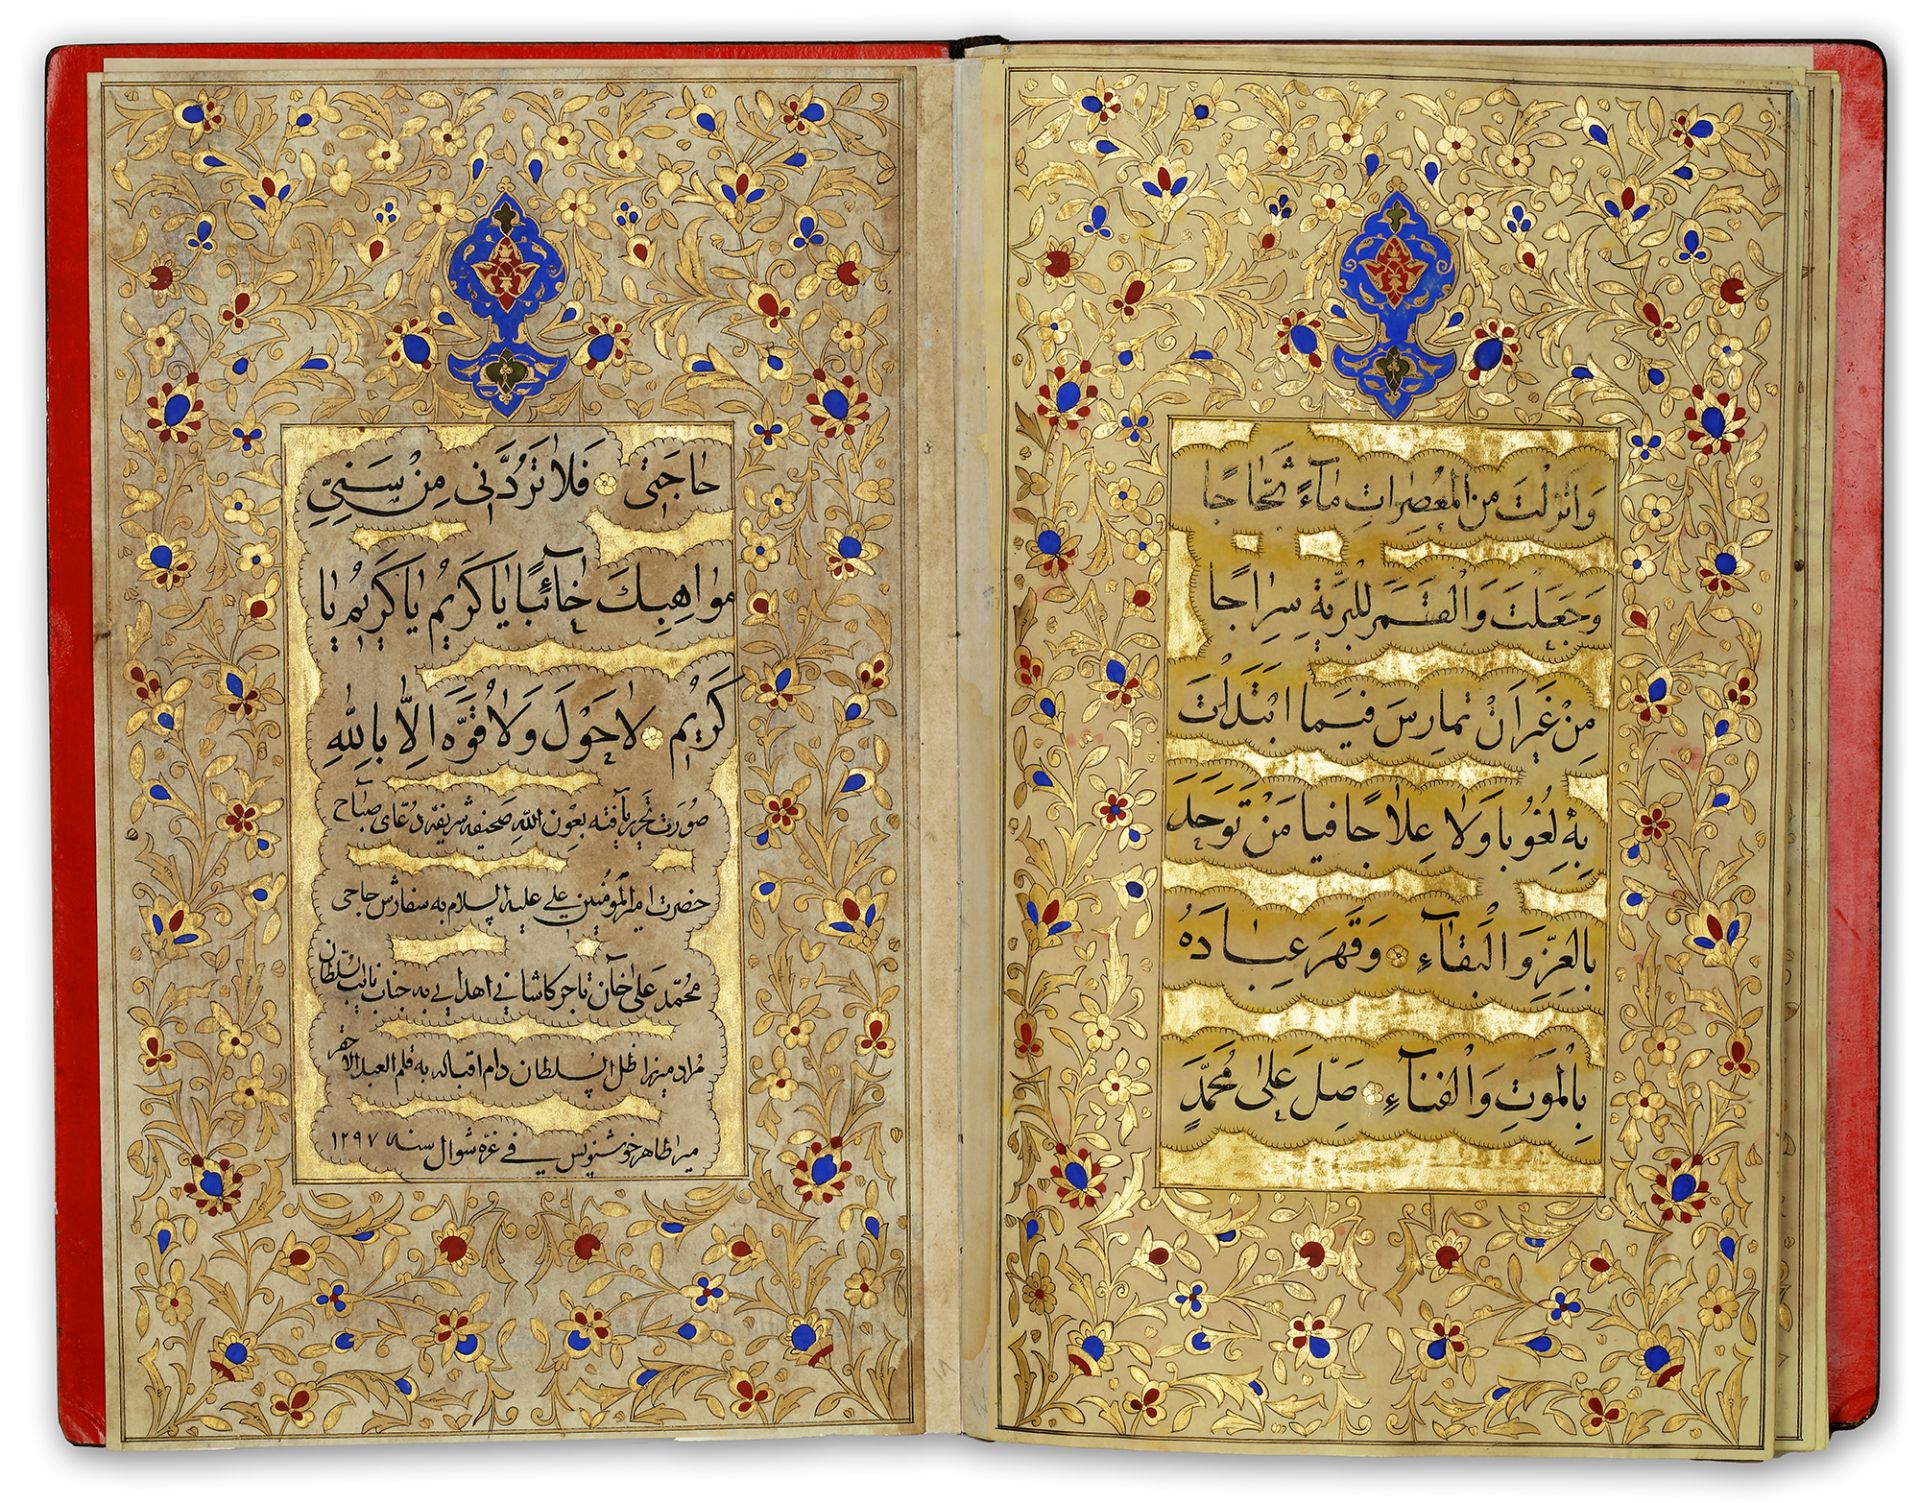 وَاَنْزَلْتَ مِنَ الْمُعْصِراتِ ماءً ثَجّاجًا
وَجَعَلْتَ وَالْقَمَرَ لِلْبَرِيَّةِ سِراجًا
مِنْ غَيْرِ اَنْ تُمارِسَ فيمَا ابْتَدَاْتَ
بِهِ لُغُوبًا وَلا عِلاجًا فَيا مَنْ تَوَحَّدَ
بِالْعِزِّ وَالْبَقاءِ وَقَهَرَ عِبادَهُ
بِالْمَوْتِ وَالْفَناءِ صَلِّ عَلى مُحَمَّدٍ
حاجَتى فَلا تَرُدَّنى مِنْ سَنِىِّ
مَواهِبِكَ خائِبًا يا كَريمُ يا كَريمُ يا
كَريمُ لا حَوْلَ وَلا قُوَّةَ اِلاّ بِاللهِ
صورت تحرير يافته بعون الله صحيفه شريفه دُعاى صباح
حضرت امير المؤمنين علي عليه السلام به سفارش حاجى
محمّد على خان تاجر كاشاني اهدايي به جناب نايب السلطان
مراد ميرزا ظل السلطان دام اقباله به قلم العبد الاحقر
ميرزا طاهر خوشنويس في غره شوال سنه ١٢٩٧